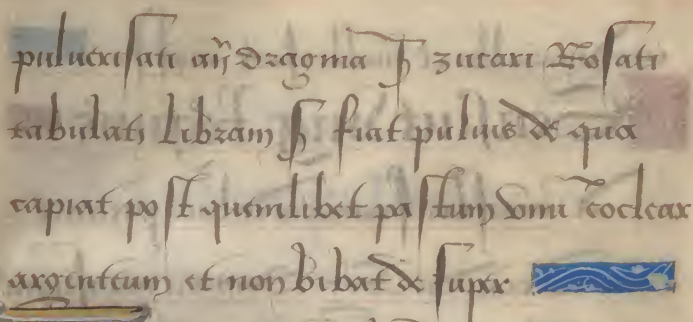 puluerisati añ dragma ß zucari Rosati
tabulati libram ß fiat puluis de qua
capiat post quemlibet pastum vnū coclear
argenteum et non bibat de super